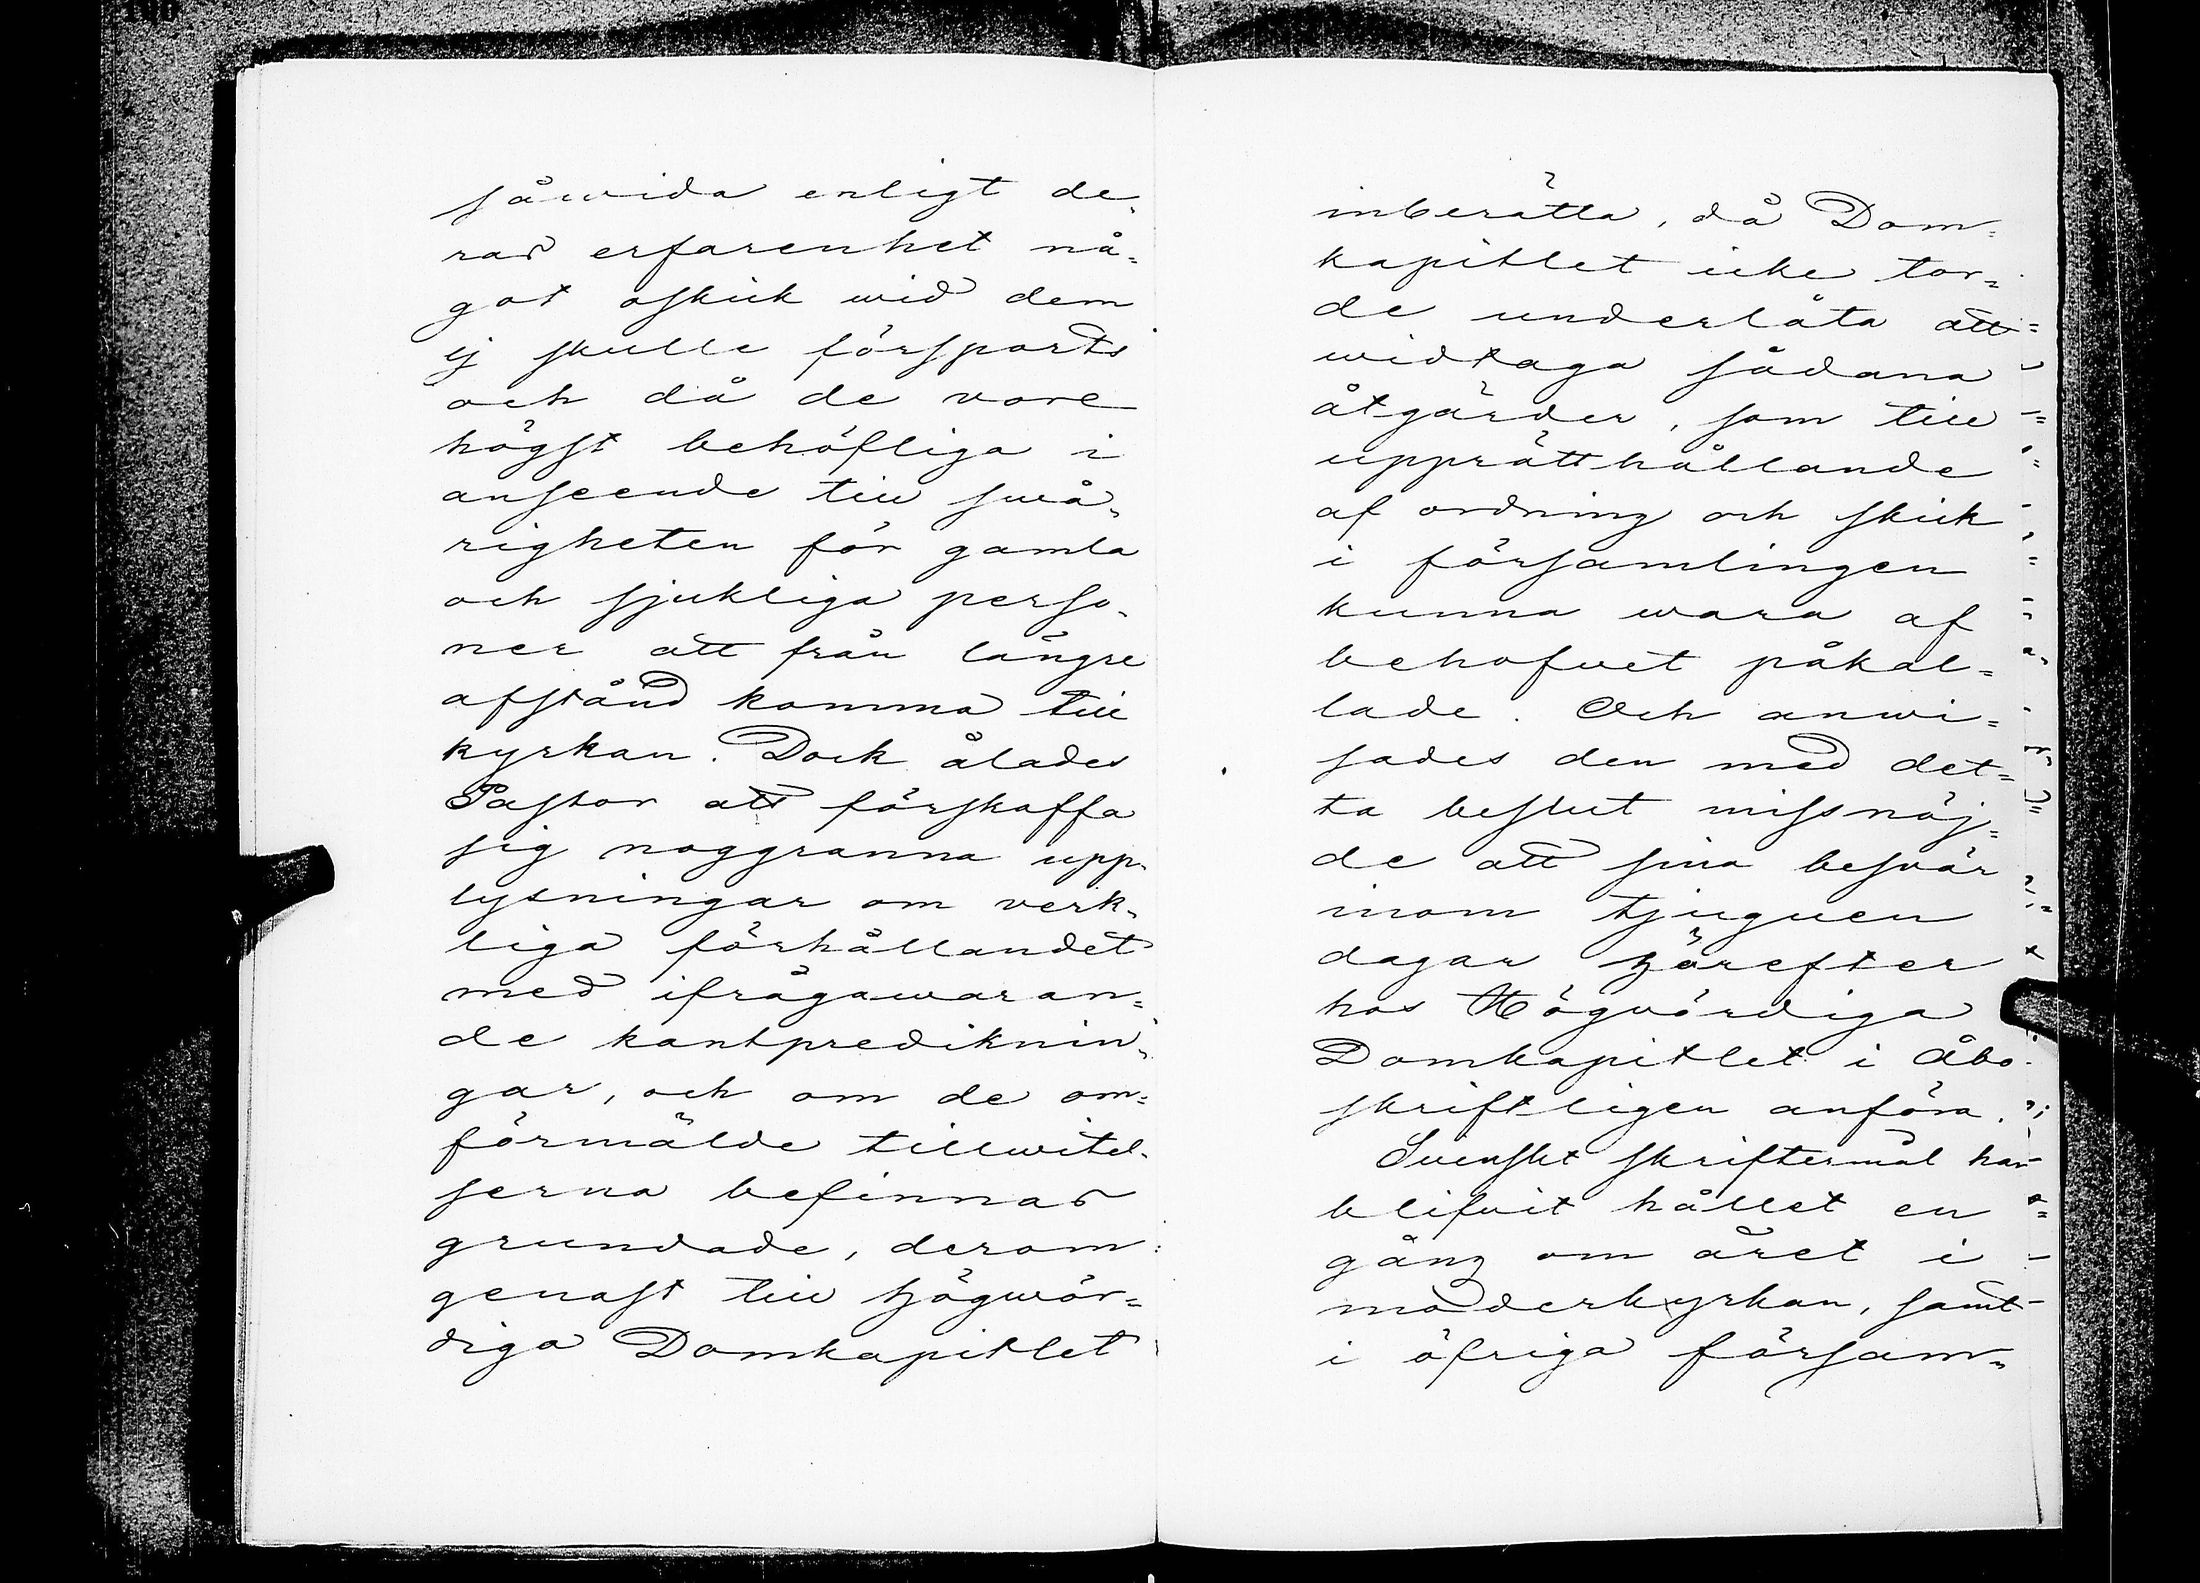 såwida enligt de-
ras erfarenhet nå=
got oskick wid dem
ej skulle försports
och då de vore
högst behöfliga i
anseende till swå-
righeten för gamla
och sjukliga perso-
ner att från längre
afstånd komma till
kyrkan. Dock ålades
Pastor att förskaffa
sig noggranna upp-
lysningar om verk-
liga förhållandet
med ifrågawaran=
de kantprediknin-
gar, och om de om=
förmälde tillwitel-
serna befinnas
grundade, derom
genast till högwör=
diga Domkapitlet
inberätta, då Dom=
kapitlet icke tor=
de underlåta att
widtaga sådana
åtgärder, som till
upprätthållande
af ordning och skick
i församlingen
kunna wara af
behofvet påkal=
lade. Och anwi=
sades den med det=
ta beslut missnöj=
de att sina besvär
inom tjuguen
dagar härefter
hos Högvördiga
Domkapitlet i Åbo
skriftligen anföra.
Svenskt skriftermål har
blifvit hållet en
gång om året i
moderkyrkan, samt
i öfriga försam=